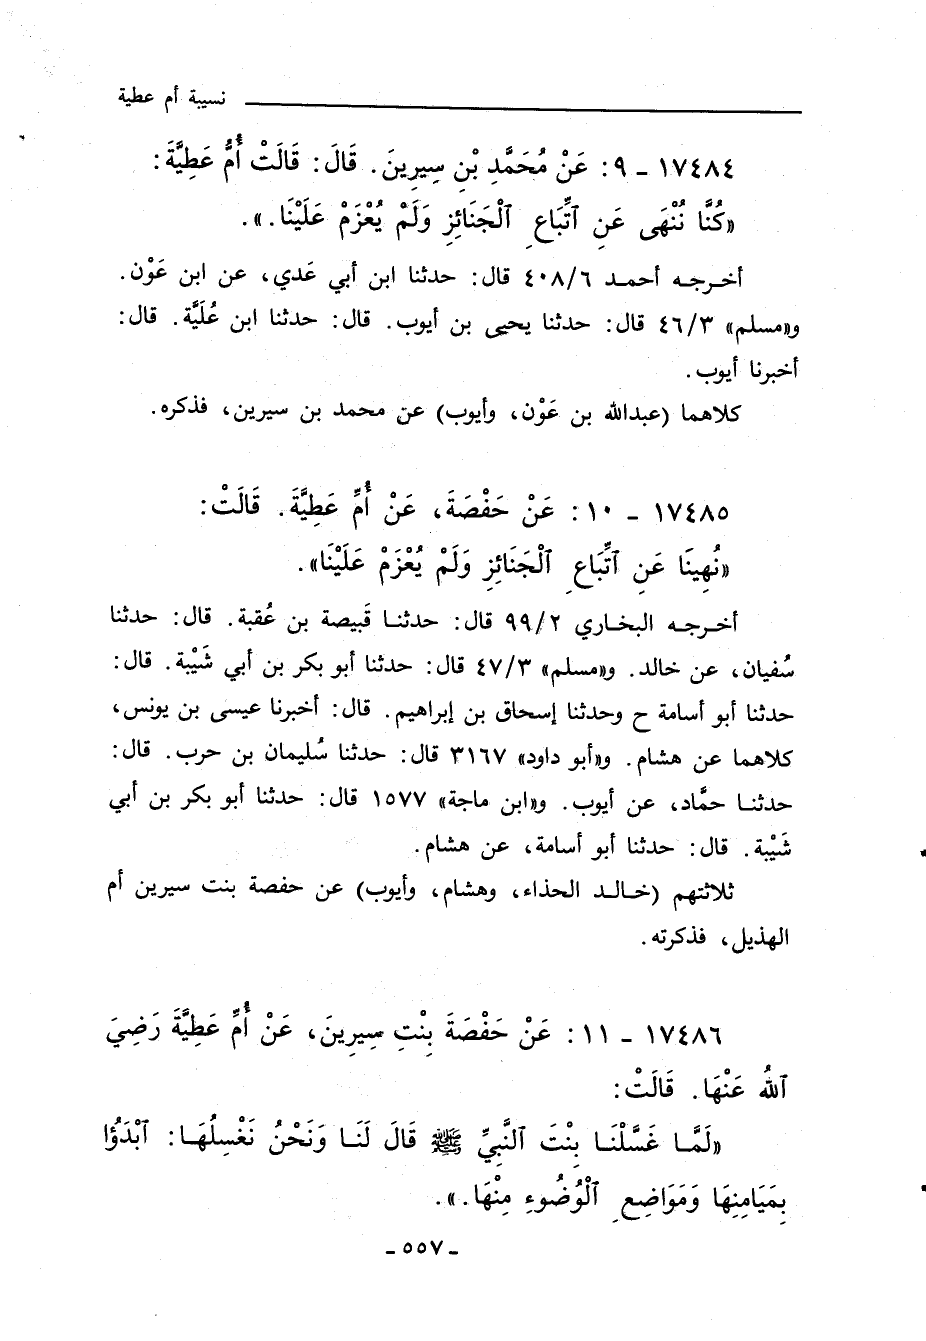 نسيبة أم عطية
١٧٤٨٤ ـ ٩: عَنْ مُحَمَّدِ بْنِ سِيرِينَ. قَالَ: قَالَتْ أُمُّ عَطِيَّةَ:
«كُنَّا نُنْهَى عَنِ ٱتِّبَاعِ ٱلْجَنَائِزِ وَلَمْ يُعْزَمْ عَلَيْنَا.».
أخرجه أحمد ٤٠٨/٦ قال: حدثنا ابن أبي عَدي، عن ابن عَوْن.
و«مسلم» ٤٦/٣ قال: حدثنا يحيى بن أيوب. قال: حدثنا ابن عُلَيَّة. قال:
أخبرنا أيوب.
كلاهما (عبدالله بن عَوْن، وأيوب) عن محمد بن سيرين، فذكره.
١٧٤٨٥ ـ ١٠: عَنْ حَفْصَةَ، عَنْ أُمِّ عَطِيَّةَ. قَالَتْ:
«نُهِينَا عَنِ ٱتِّبَاعِ ٱلْجَنَائِزِ وَلَمْ يُعْزَمْ عَلَيْنَا».
أخرجه البخاري ٩٩/٢ قال: حدثنا قَبيصة بن عُقبة. قال: حدثنا
سُفيان، عن خالد. و«مسلم» ٤٧/٣ قال: حدثنا أبو بكر بن أبي شَيْبة. قال:
حدثنا أبو أسامة ح وحدثنا إسحاق بن إبراهيم. قال: أخبرنا عيسى بن يونس،
كلاهما عن هشام. و«أبو داود» ٣١٦٧ قال: حدثنا سُليمان بن حرب. قال:
حدثنا حمَّاد، عن أيوب. و«ابن ماجة» ١٥٧٧ قال: حدثنا أبو بكر بن أبي
شَيْبة. قال: حدثنا أبو أسامة، عن هشام.
ثلاثتهم (خالد الحذاء، وهشام، وأيوب) عن حفصة بنت سيرين أم
الهذيل، فذكرته.
١٧٤٨٦ ـ ١١: عَنْ حَفْصَةَ بِنْتِ سِيرِينَ، عَنْ أُمِّ عَطِيَّةَ رَضِيَ
ٱللهُ عَنْهَا. قَالَتْ:
«لَمَّا غَسَّلْنَا بِنْتَ ٱلنَّبِيِّ ﷺ قَالَ لَنَا وَنَحْنُ نَغْسِلُهَا: ٱبْدَؤُا
بِمَيَامِنِهَا وَمَوَاضِعِ ٱلْوُضُوءِ مِنْهَا.».
ـ ٥٥٧ ـ